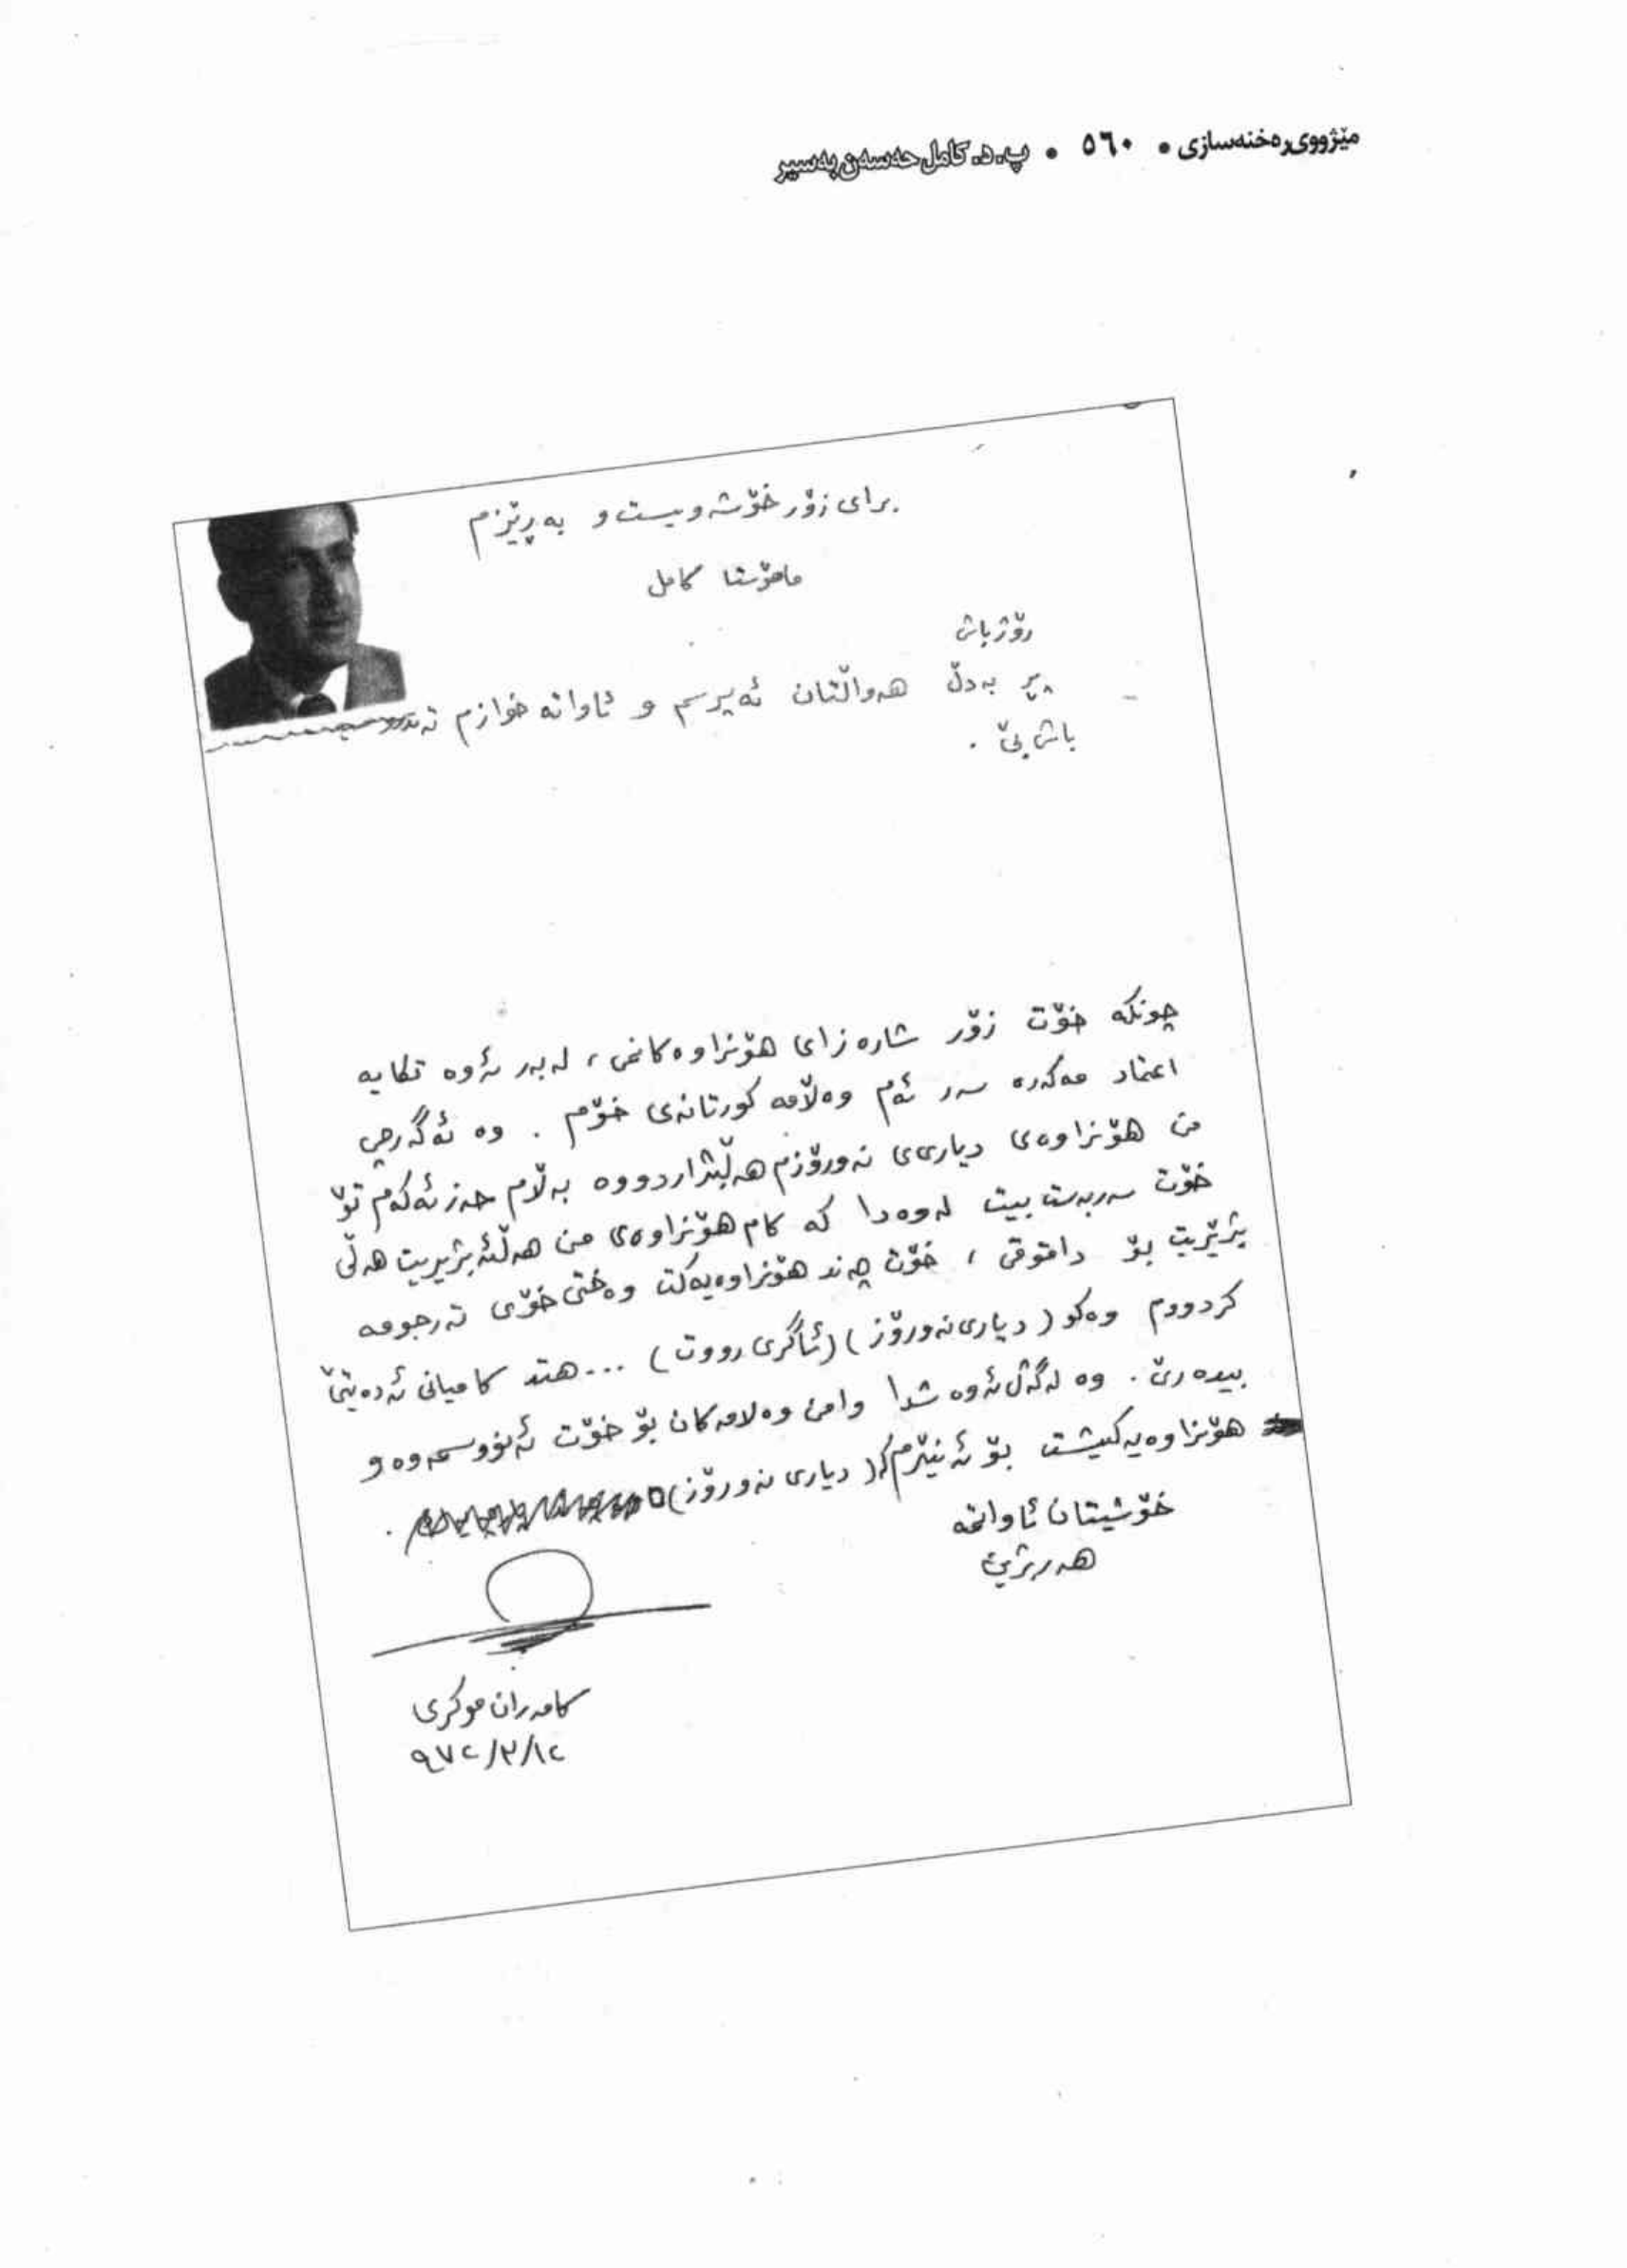 مێژووی ڕەخنەسازی • ٥٦٠ • پ.د. کامل حەسەن بەسیر
برای زۆر خۆشەویست و بەڕێزم
مامۆستا کامل
رۆژباش
پڕ بەدڵ هەواڵتان ئەپرسم و ئاواتە خوازم
باش بێ .
چونکە خۆت زۆر شارەزای هۆنراوەکانمی، لەبەر ئەوە تکایە
اعتماد مەکەرە سەر ئەم وەڵامە کورتانەی خۆم . وە ئەگەرچی
من هۆنراوەی دیاریی نەورۆزم هەڵبژاردووە بەڵام حەز ئەکەم تۆ
خۆت سەربەست بیت لەوەدا کە کام هۆنراوەی من هەڵئەبژیریت هەڵی
بژێریت بۆ داقوقی ، خۆت چەند هۆنراوەیەکت وەختی خۆی تەرجومە
کردووم وەکو (دیاری نەورۆز) (ئاگری رووت) ... هتد کامیانی ئەدەیتێ
بیدەرێ . وە لەگەڵ ئەوەشدا وامن وەلامەکان بۆ خۆت ئەنووسمەوە و
هۆنراوەیەکیشت بۆ ئەنێرم کە (دیاری نەورۆز)
خۆشیتان ئاواتمە
هەربژین
کامەران موکری
٩٧٢/٣/١٢